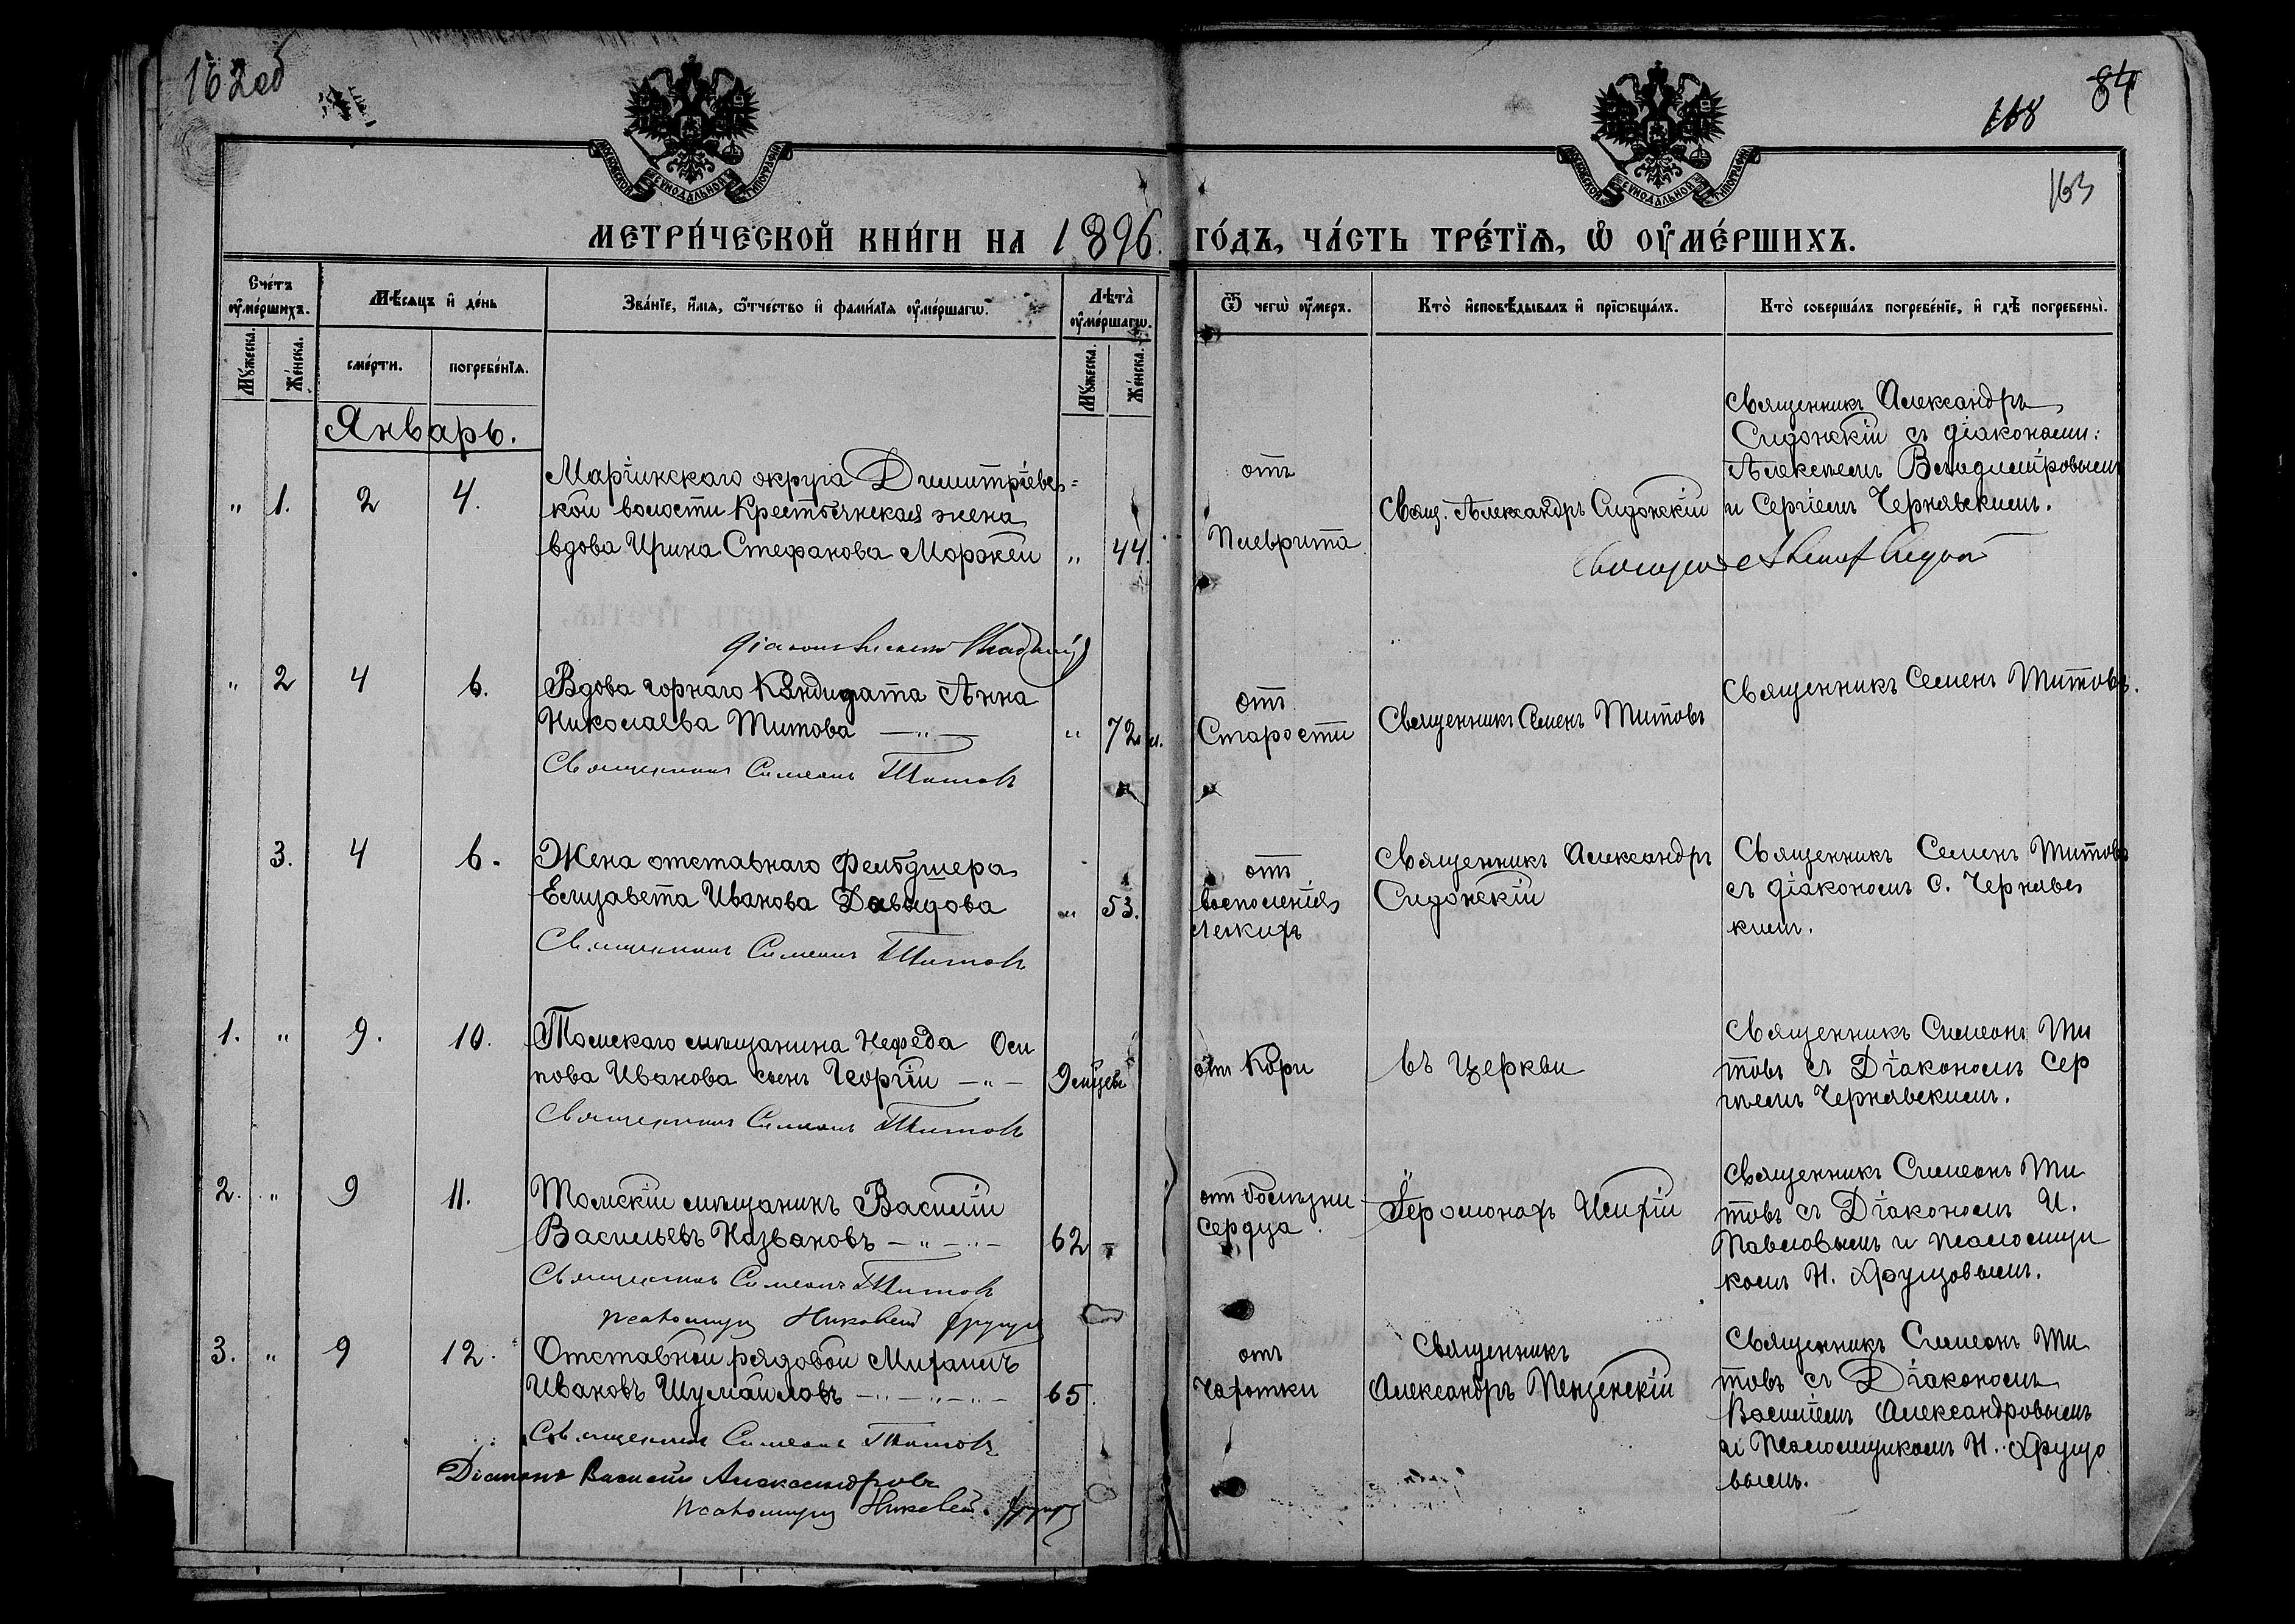 162об
84
168
163
МОСКОВСКОЙ СѴНОДАЛЬНОЙ ТИПОГРАФІИ
МОСКОВСКОЙ СѴНОДАЛЬНОЙ ТИПОГРАФІИ
МЕТРИ́ЧЕСКОЙ КНИ́ГИ НА 1896 ГО́ДЪ, ЧА́СТЬ ТРЕ́ТІѦ, Ѡ҆ ОУ҆МЕ́РШИХЪ.
Сче́тъ
оу҆ме́ршихъ.
Му́жеска.
Же́нска.
Мѣ́сяцъ и҆ де́нь
сме́рти.
погребе́нїѧ.
Зва́нїе, и҆́мѧ, ѻ҆́тчество и҆ фами́лїѧ оу҆ме́ршагѡ.
Лѣ́та̀
оу҆ме́ршагѡ.
Му́жеска.
Же́нска.
Ѿ чегѡ̀ оу҆́меръ.
Кто̀ и҆сповѣ́дывалъ и҆ прїѡбща́лъ.
Кто̀ соверша́лъ погребе́нїе, и҆ гдѣ̀ погребены̀.
Январь.
" 1. 2 4.
Маріинскаго округа Димитріевс=
кой волости Крестьянская жена
вдова Ирина Стефанова Морокей " 44.
отъ
Плеврита
Свящ. Александръ Сидонскій
Священникъ Александръ
Сидонскій съ діаконами:
Алексѣемъ Владиміровымъ
и Сергіемъ Чернявскимъ.
" 2 4 6.
Вдова горнаго Кандидата Анна
Николаева Титова — " — " 72 л.
Священникъ Симеонъ Титовъ
отъ
Старости
Священникъ Семенъ Титовъ
Священникъ Семенъ Титовъ.
3. 4 6.
Жена отставнаго Фельдшера
Елизавета Иванова Давыдова " 53.
Священникъ Симеонъ Титовъ
отъ
воспаленія
легкихъ
Священникъ Александръ
Сидонскій
Священникъ Семенъ Титовъ
съ діакономъ С. Чернявс
кимъ.
1. " 9. 10.
Томскаго мѣщанина Нефеда Оси
пова Иванова сынъ Георгій — " — 9 мѣсцевъ
Священникъ Симеонъ Титовъ
отъ Кори
въ церкви
Священникъ Симеонъ Ти
товъ съ Діакономъ Сер
гѣемъ Чернявскимъ.
2. " 9 11.
Томскій мѣщанинъ Василій
Васильевъ Названовъ — " — " — 62
Священникъ Симеонъ Титовъ
псаломщикъ Николай Хрущовъ
отъ болѣзни
сердца.
Іеромонахъ Исихій
Священникъ Симеонъ Ти
товъ съ Діакономъ И.
Павловымъ и псаломщи
комъ Н. Хрущовымъ.
3. " 9 12.
Отставной рядовой Михаилъ
Ивановъ Шумаиловъ — " — " — " — 65.
Священникъ Симеонъ Титовъ
Діаконъ Василій Александровъ
псаломщикъ Николай Хрущовъ
отъ
Чахотки
Священникъ
Александръ Пензенскій
Священникъ Симеонъ Ти
товъ съ Діакономъ
Василіемъ Александровымъ
и Псаломщикомъ Н. Хрущо
вымъ.